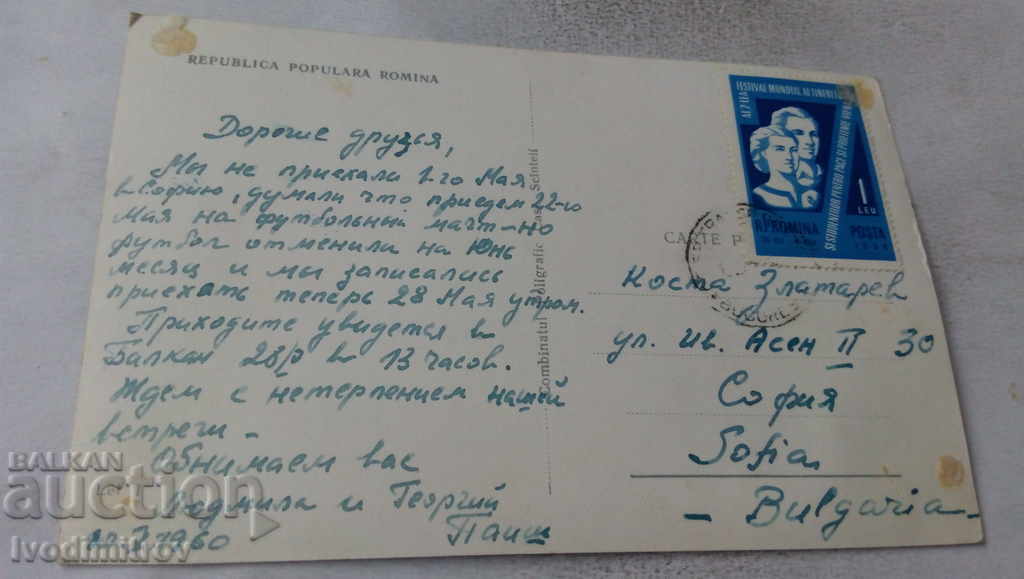 REPUBLICA POPULARA ROMINA
Дорогие друзья,
Мы не приехали 1-го Мая
в Софию, думали что приедем 22-го
Мая на футбольный матч - но
футбол отменили на Юнь
месяц и мы записались
приехать теперь 28 Мая утром.
Приходите увидется в
Балкан 28/V в 13 часов.
Ждем с нетерпением нашей
встречи -
Обнимаем вас
Людмила и Георгий
Паиш
1960
Combinatul Poligrafic Casa Scînteii
CARTE P
AL 7-LEA FESTIVAL MONDIAL AL TINERETULUI
SI STUDENTILOR PENTRU PACE SI PRIETENIE VIENA
R.P.ROMINA
1
LEU
POSTA
Коста Златарев
ул. Ив. Асен II 30
София
Sofia
- Bulgaria -
BALKAN
auction
ivodimitrov